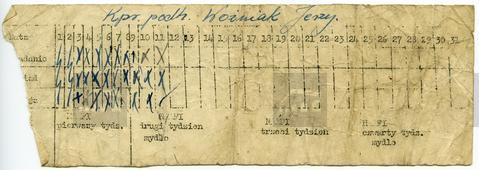 Kpr. podh. Woźniak Jerzy.
ata 1 2 3 4 5 6 7 8 9 10 11 12 13 14 16 17 18 19 20 21 22 23 24 25 26 27 28 29 30 31
adanie
iad
pierwszy tydz. drugi tydsien trzeci tydsien czwarty tydz.
mydło mydło